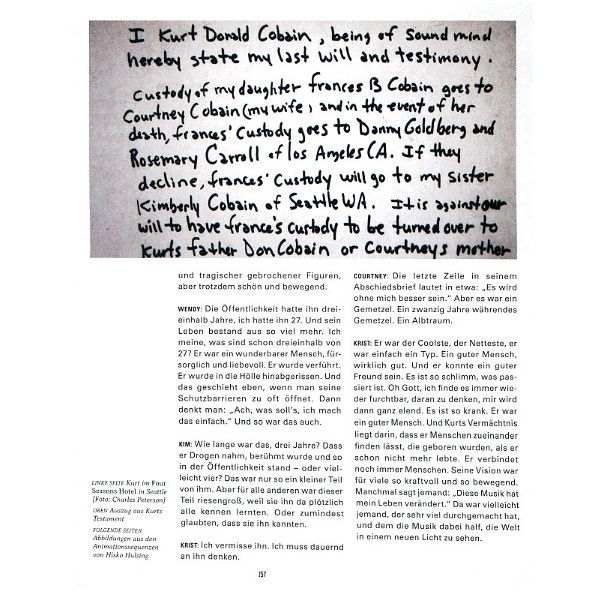 I Kurt Donald Cobain, being of sound mind
hereby state my last will and testimony.
Custody of my daughter frances B Cobain goes to
Courtney Cobain (my wife) and in the event of her
death, frances' custody goes to Danny Goldberg and
Rosemary Carroll of los Angeles CA. If they
decline, frances' custody will go to my sister
Kimberly Cobain of Seattle WA. It is against our
will to have france's custody to be turned over to
Kurts father Don Cobain or Courtneys mother
und tragischer gebrochener Figuren,
aber trotzdem schön und bewegend.
WENDY: Die Öffentlichkeit hatte ihn drei-
einhalb Jahre, ich hatte ihn 27. Und sein
Leben bestand aus so viel mehr. Ich
meine, was sind schon dreieinhalb von
27? Er war ein wunderbarer Mensch, für-
sorglich und liebevoll. Er wurde verführt.
Er wurde in die Hölle hinabgerissen. Und
das geschieht eben, wenn man seine
Schutzbarrieren zu oft öffnet. Dann
denkt man: „Ach, was soll's, ich mach
das einfach.“ Und so war das auch.
KIM: Wie lange war das, drei Jahre? Dass
er Drogen nahm, berühmt wurde und so
in der Öffentlichkeit stand – oder viel-
leicht vier? Das war nur so ein kleiner Teil
von ihm. Aber für alle anderen war dieser
Teil riesengroß, weil sie ihn da plötzlich
alle kennen lernten. Oder zumindest
glaubten, dass sie ihn kannten.
KRIST: Ich vermisse ihn. Ich muss dauernd
an ihn denken.
COURTNEY: Die letzte Zeile in seinem
Abschiedsbrief lautet in etwa: „Es wird
ohne mich besser sein.“ Aber es war ein
Gemetzel. Ein zwanzig Jahre währendes
Gemetzel. Ein Albtraum.
KRIST: Er war der Coolste, der Netteste, er
war einfach ein Typ. Ein guter Mensch,
wirklich gut. Und er konnte ein guter
Freund sein. Es ist so schlimm, was pas-
siert ist. Oh Gott, ich finde es immer wie-
der furchtbar, daran zu denken, mir wird
dann ganz elend. Es ist so krank. Er war
ein guter Mensch. Und Kurts Vermächtnis
liegt darin, dass er Menschen zueinander
finden lässt, die geboren wurden, als er
schon nicht mehr lebte. Er verbindet
noch immer Menschen. Seine Vision war
für viele so kraftvoll und so bewegend.
Manchmal sagt jemand: „Diese Musik hat
mein Leben verändert.“ Da war vielleicht
jemand, der sehr viel durchgemacht hat,
und dem die Musik dabei half, die Welt
in einem neuen Licht zu sehen.
LINKE SEITE Kurt im Four
Seasons Hotel in Seattle
[Foto: Charles Peterson]
OBEN Auszug aus Kurts
Testament
FOLGENDE SEITEN
Abbildungen aus den
Animationssequenzen
von Hisko Hulsing
157